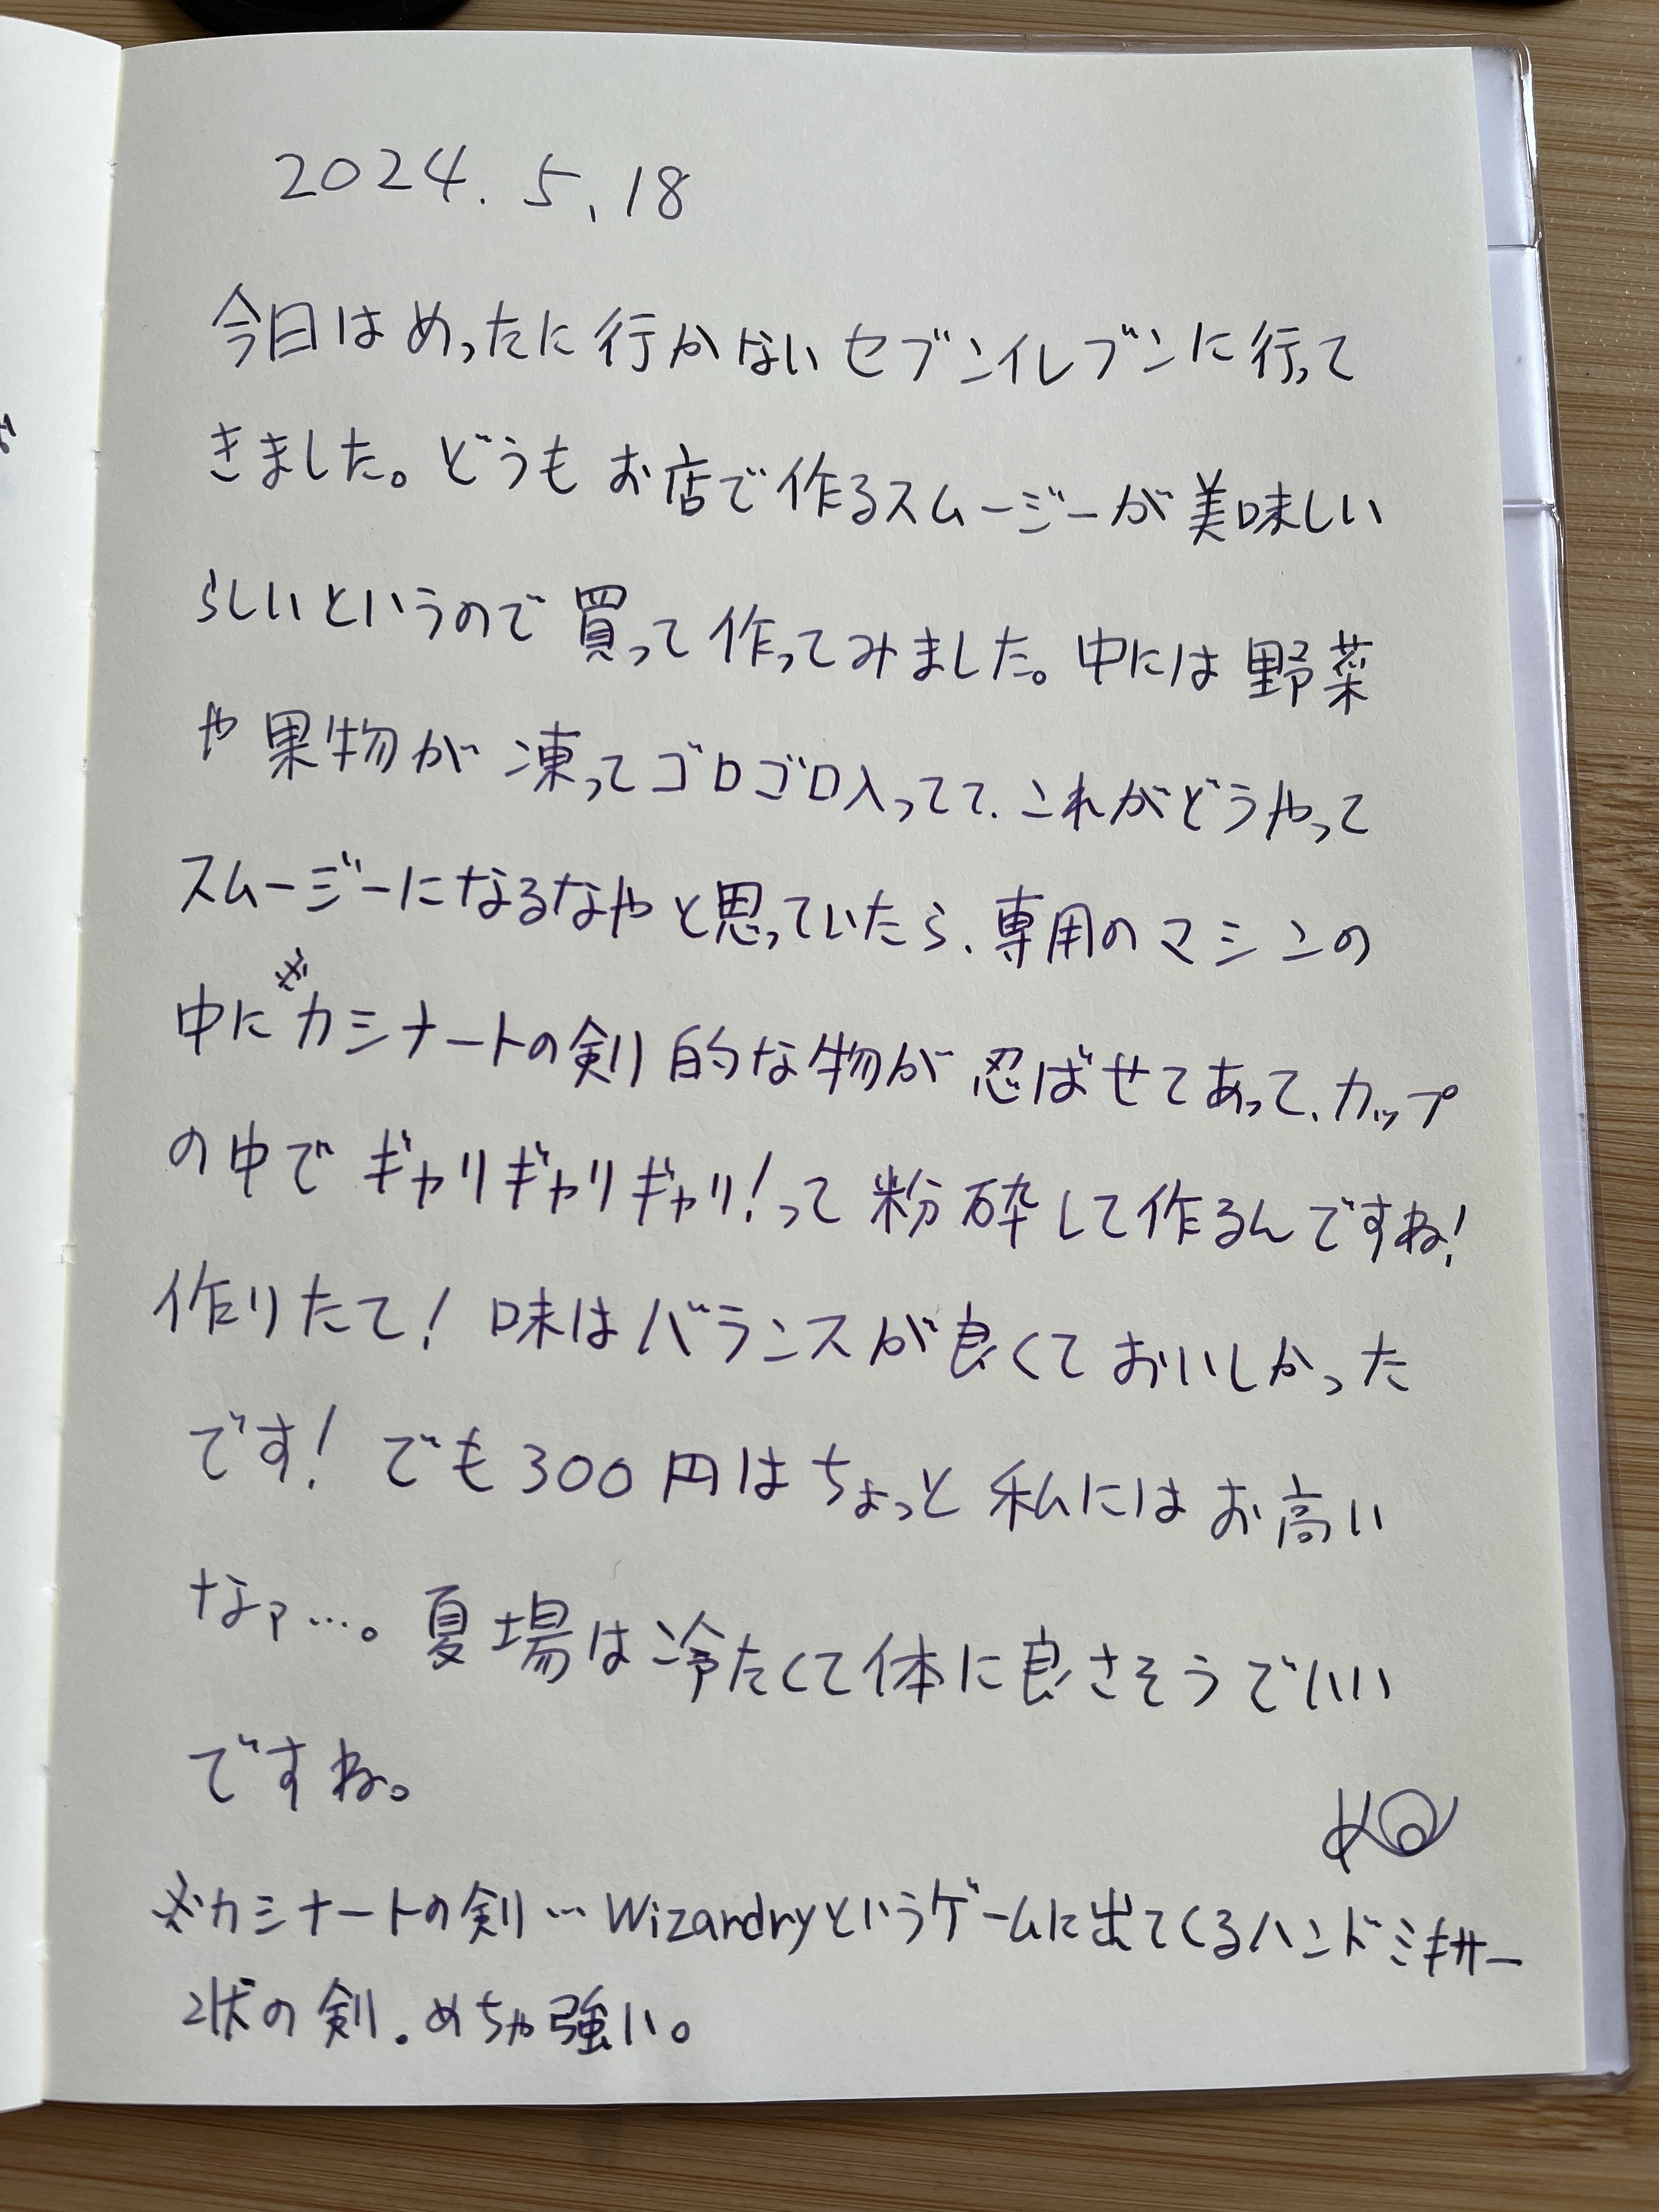 2024.5.18
今日はめったに行かないセブンイレブンに行って
きました。どうもお店で作るスムージーが美味しい
らしいというので買って作ってみました。中には野菜
や果物が凍ってゴロゴロ入ってて、これがどうやって
スムージーになるなやと思っていたら、専用のマシンの
中に※カシナートの剣的な物が忍ばせてあって、カップ
の中でギャリギャリギャリ!って粉砕して作るんですね!
作りたて!味はバランスが良くておいしかった
です!でも300円はちょっと私にはお高い
なァ…。夏場は冷たくて体に良さそうでいい
ですね。
※カシナートの剣…Wizardryというゲームに出てくるハンドミキサー
状の剣。めちゃ強い。